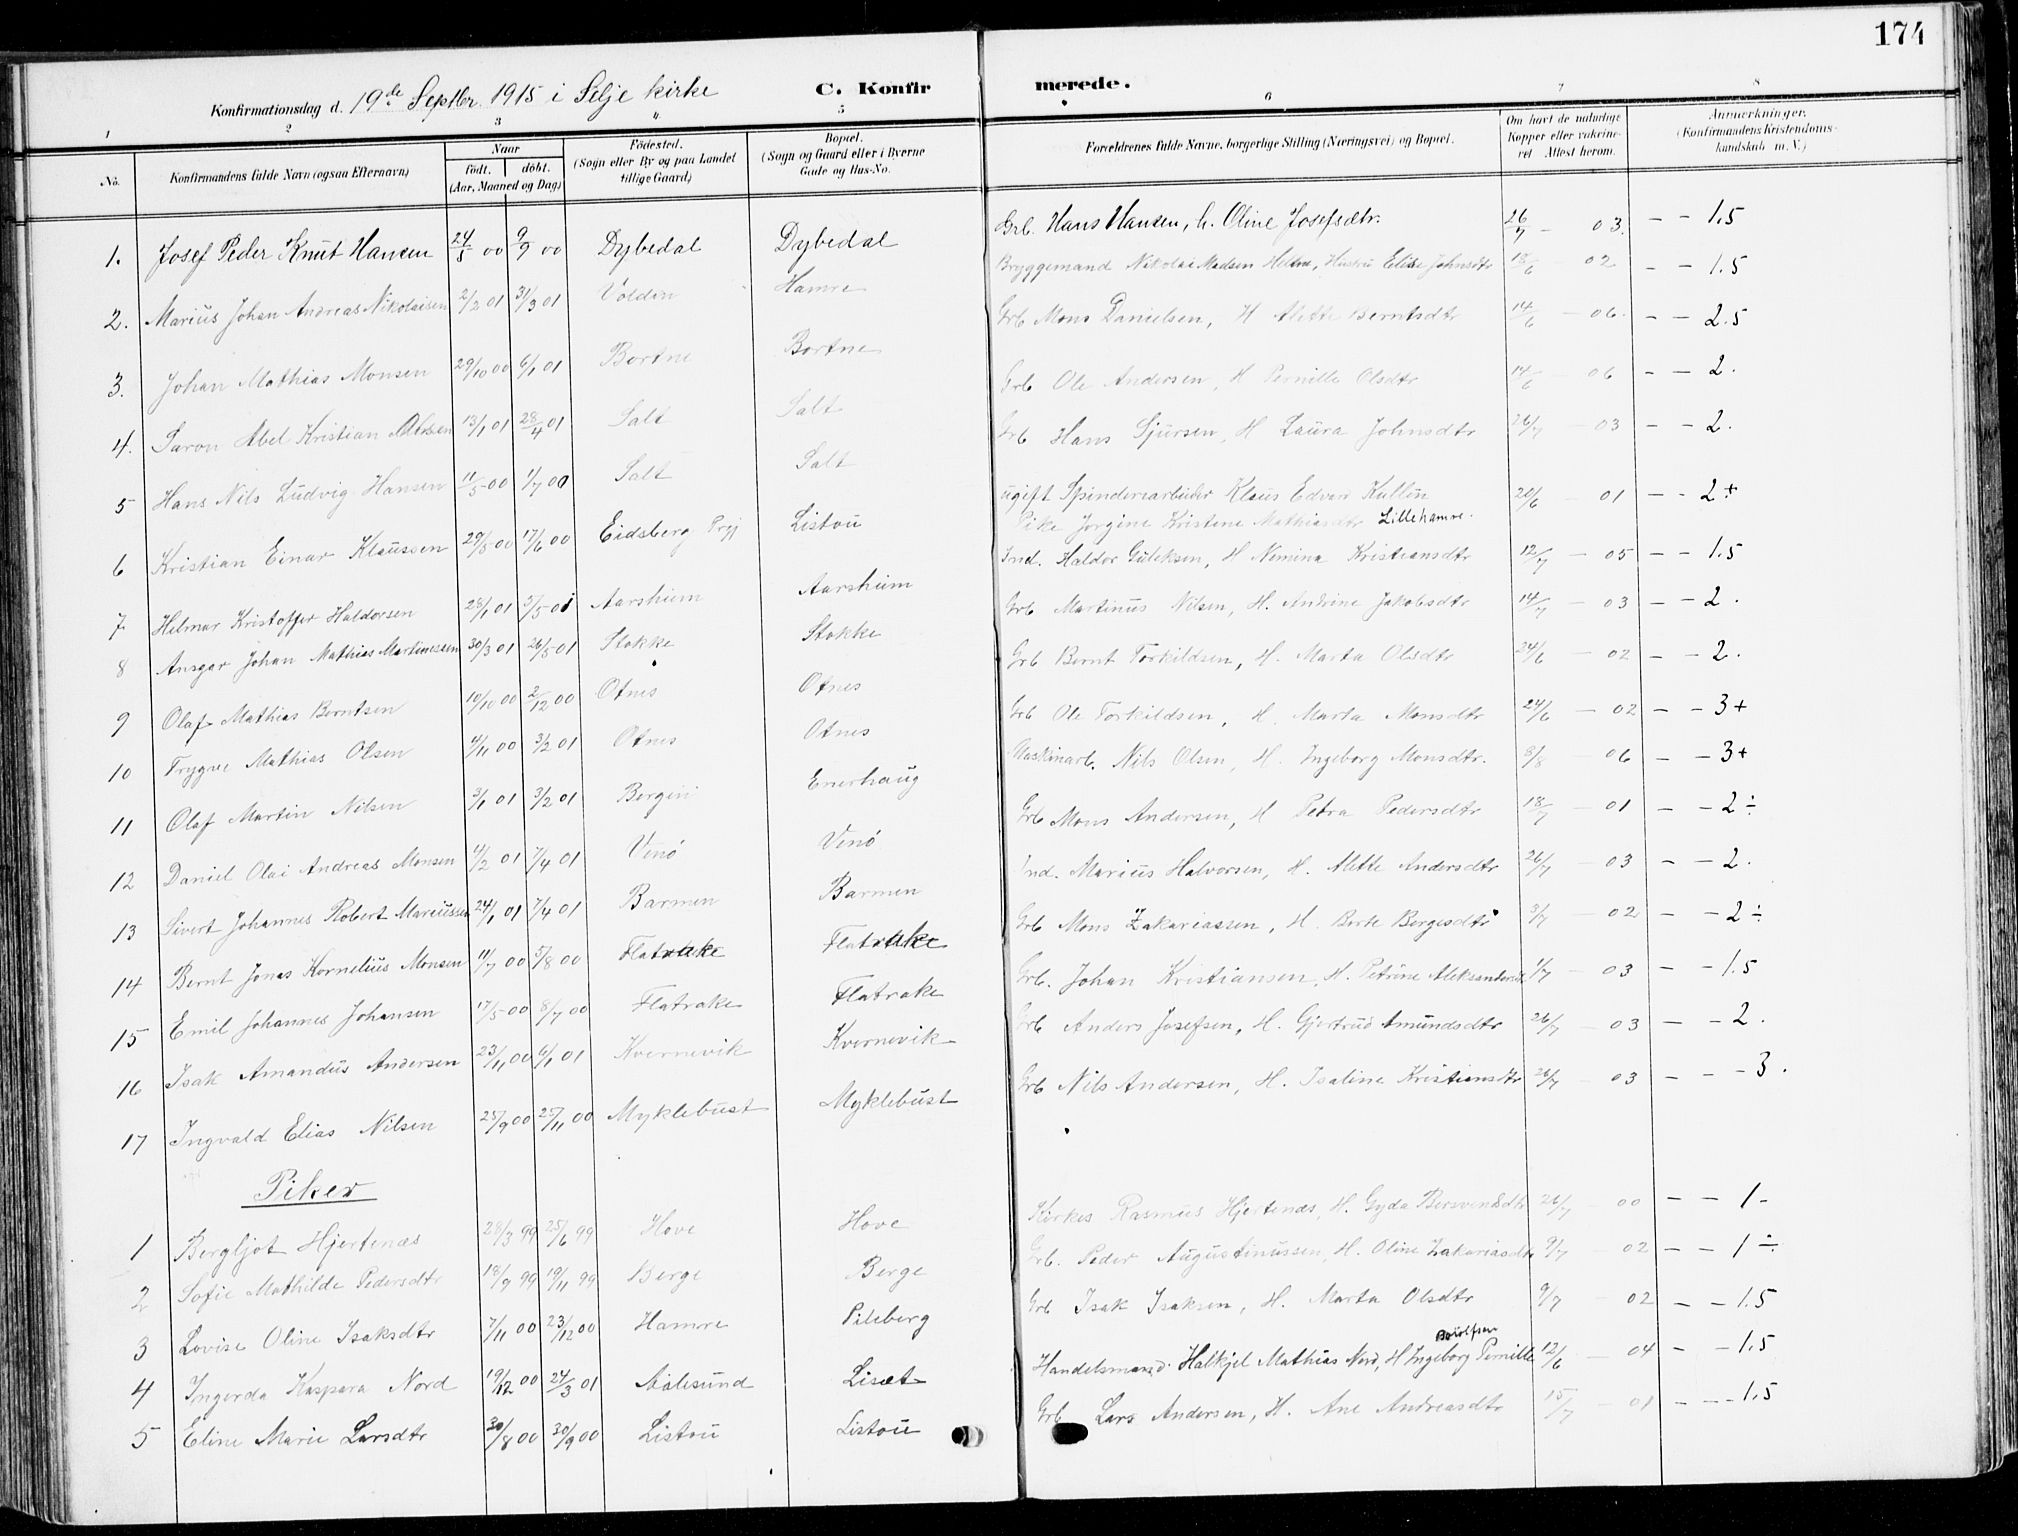 174
Konfirmationsdag d. 19de Septbr. 1915 i Selje kirke C. Konfirmerede.
1 2 3 4 5 6 7 8
No. Konfirmandens fulde Navn (ogsaa Efternavn) Naar födt. döbt. (Aar, Maaned og Dag) Födested. (Sogn eller By og paa Landet tillige Gaard) Bopæl. (Sogn og Gaard eller i Byerne Gade og Hus-No. Forældrenes fulde Navne, borgerlige Stilling (Næringsvei) og Bopæl. Om havt de naturlige Kopper eller vakcineret Attest herom. Anmerkninger. (Konfirmandens Kristendomskundskab m. V.)
1. Josef Peder Knut Hansen 24/5 00 9/9 00 Dybedal Dybedal Grb. Hans Hansen, h. Oline Josefsdtr. 26/7 - 03. - - 1.5
2. Marius Johan Andreas Nikolaisen 2/2 01 31/3 01 Volden Hamre Bryggemand Nikolai Madsen Helme, Hustru Elise Johnsdtr 18/6 - 02 - - 1.5
3. Johan Mathias Monsen 29/10 00 6/1 01 Bortne Bortne Grb Mons Danielsen, H Alette Berntsdtr 14/6 - 06. - - 2.5
4. Saron Abel Kristian Olsen 13/1 01 28/4 01 Salt Salt Grb Ole Andersen, H Pernille Olsdtr 14/6 - 06 - - 2.
5 Hans Nils Ludvig Hansen 11/5 00 1/7 00 Salt Salt Grb Hans Sjursen, H Laura Johnsdtr 26/7 - 03 - - 2.
6 Kristian Einar Klaussen 29/5 00 17/6 00 Eidsberg Prgj Listou ugift Spinderiarbeider Klaus Edvar Kullun
Pike Jorgine Kristene Mathiasdtr Lillehamre. 20/6 - 01 - - 2+
7 Helmer Kristoffer Haldorsen 28/1 01 5/5 01 Aarsheim Aarsheim Ind. Haldor Guleksen, H Nemina Kristiansdtr 12/7 - 05 - - 1.5
8 Ansgar Johan Mathias Martinussen 30/3 01 26/5 01 Stokke Stokke Grb Martinus Nilsen, H. Andrine Jakobsdtr 14/7 - 03 - - 2.
9 Olaf Mathias Berntsen 10/10 00 2/12 00 Otnes Otnes Grb Bernt Torkildsen, H. Marta Olsdtr 24/6 - 02 - - 2.
10 Trygve Mathias Olsen 4/11 00 3/2 01 Otnes Otnes Grb Ole Torkildsen, H. Marta Monsdtr 24/6 - 02 - - 3+
11 Olaf Martin Nilsen 3/1 01 3/2 01 Bergen Enerhaug Maskinarb. Nils Olsen, H. Ingeborg Monsdtr. 8/8 - 06 - - 3+
12 Daniel Olai Andreas Monsen 4/2 01 7/4 01 Venø Venø Grb Mons Andersen, H Petra Pedersdtr 18/7 - 01 - - 2÷
13 Sivert Johannes Robert Mariussen 24/1 01 7/4 01 Barmen Barmen Ind. Marius Halvorsen, H. Alette Andersdtr 26/7 - 03 - - 2.
14 Bernt Jonas Kornelius Monsen 11/7 00 5/8 00 Flatrake Flatrake Grb Mons Zakariassen, H. Berte Bergesdtr 3/7 - 02 - - 2÷
15 Emil Johannes Johansen 17/5 00 8/7 00 Flatrake Flatrake Grb. Johan Kristiansen, H. Petrine Aleksandersdtr 1/7 - 03 - - 1.5
16 Isak Amandus Andersen 23/11 00 6/1 01 Kvernevik Kvernevik Grb Anders Josefsen, H. Gjertrud Amundsdtr 26/7 - 03 - - 2.
17 Ingvald Elias Nilsen 25/9 00 25/11 00 Myklebust Myklebust Grb Nils Andersen, H. Isaline Kristiansdtr 26/7 - 03 - - - 3.
Piker
1 Bergljot Hjertenæs 28/3 99 25/6 99 Hove Hove Kirkes Rasmus Hjertenæs, H. Gyda Bersvendsdtr 26/7 - 00 - - 1-
2 Sofie Mathilde Pedersdtr 18/9 99 19/11 99 Berge Berge Grb. Peder Augustinussen, H. Oline Zakariasdtr 9/7 - 02 - - 1÷
3 Lovise Oline Isaksdtr 7/11 00 23/12 00 Hamre Pileberg Grb Isak Isaksen, H. Marta Olsdtr 9/7 - 02 - - 1.5
4 Ingerda Kaspara Nord 19/12 00 24/3 01 Aalesund Liset Handelsmand Halkjel Mathias Nord, H Ingeborg Pernille 12/6 - 04 - - 1.5
5 Eline Marie Larsdtr 30/8 00 30/9 00 Listou Listou Grb Lars Andersen, H. Ane Andreasdtr 15/7 - 01 - - - 1.5